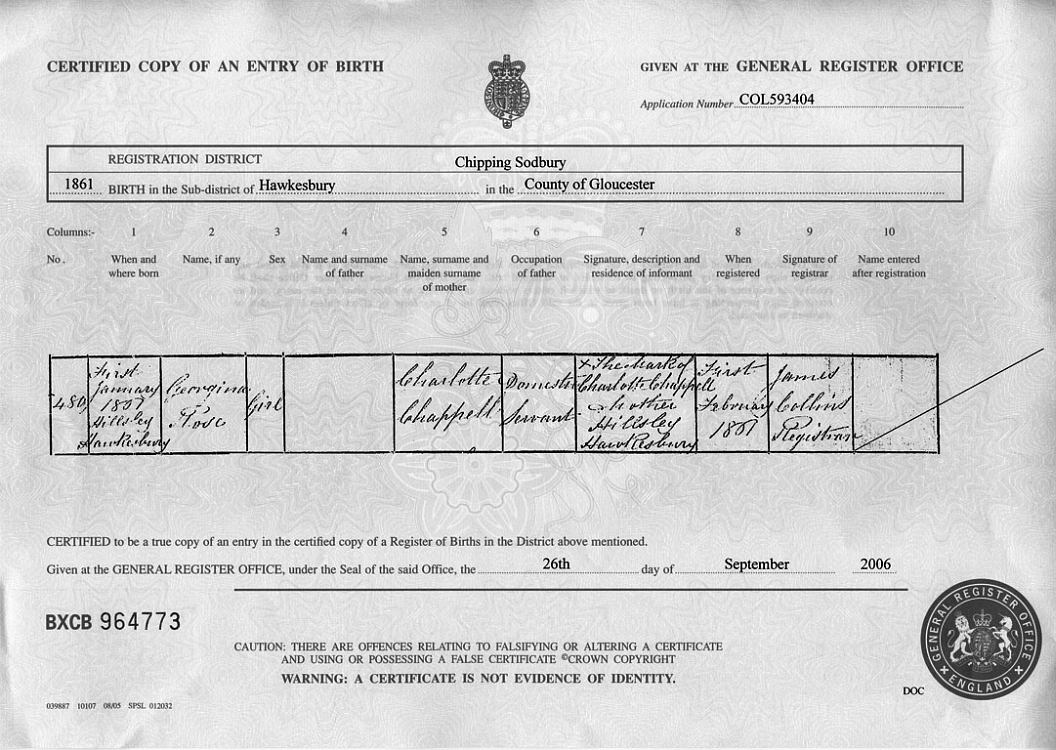 CERTIFIED COPY OF AN ENTRY OF BIRTH
GIVEN AT THE GENERAL REGISTER OFFICE
Application Number COL593404
REGISTRATION DISTRICT Chipping Sodbury
1861 BIRTH in the Sub-district of Hawkesbury in the County of Gloucester
Columns:- 1 2 3 4 5 6 7 8 9 10
No. When and where born Name, if any Sex Name and surname of father Name, surname and maiden surname of mother Occupation of father Signature, description and residence of informant When registered Signature of registrar Name entered after registration
480
First
January
Hillsley
Hawkesbury
Georgina
Rose
Girl
Charlotte
Chappell
Domestic
Servant
X The Mark of
Charlotte Chappell
Mother
Hillsley
Hawkesbury
First
February
1861
James
Collins
Registrar
CERTIFIED to be a true copy of an entry in the certified copy of a Register of Births in the District above mentioned.
Given at the GENERAL REGISTER OFFICE, under the Seal of the said Office, the 26th day of September 2006
BXCB 964773
CAUTION: THERE ARE OFFENCES RELATING TO FALSIFYING OR ALTERING A CERTIFICATE
AND USING OR POSSESSING A FALSE CERTIFICATE ©CROWN COPYRIGHT
WARNING: A CERTIFICATE IS NOT EVIDENCE OF IDENTITY.
GENERAL REGISTER OFFICE
ENGLAND
DOC
039887 10107 08/05 SPSL 012032